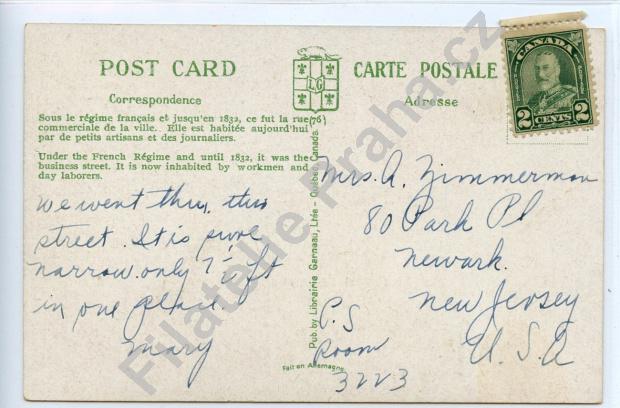 POST CARD
CARTE POSTALE
Correspondence
Adresse
LG
CANADA
2 CENTS 2
Sous le régime français et jusqu'en 1832, ce fut la rue (76)
commerciale de la ville. Elle est habitée aujourd'hui
par de petits artisans et des journaliers.
Under the French Régime and until 1832, it was the
business street. It is now inhabited by workmen and
day laborers.
We went thru this
street. It is
narrow only 7½ ft
in one place.
Mary
Pub. by Librairie Garneau, Ltée - Québec, Canada.
Fait en Allemagne
Mrs. A. Zimmerman
80 Park Pl
Newark.
New Jersey
U.S.A
P.S
Room
3223
Filatelie Praha.cz